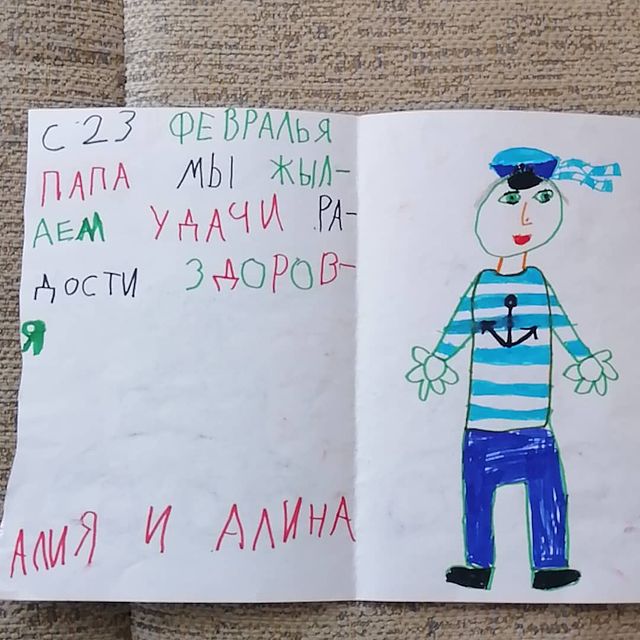 С 23 ФЕВРАЛЬЯ
ПАПА МЫ ЖЫЛ-
АЕМ УДАЧИ РА-
ДОСТИ ЗДОРОВ-
Я
АЛИЯ И АЛИНА